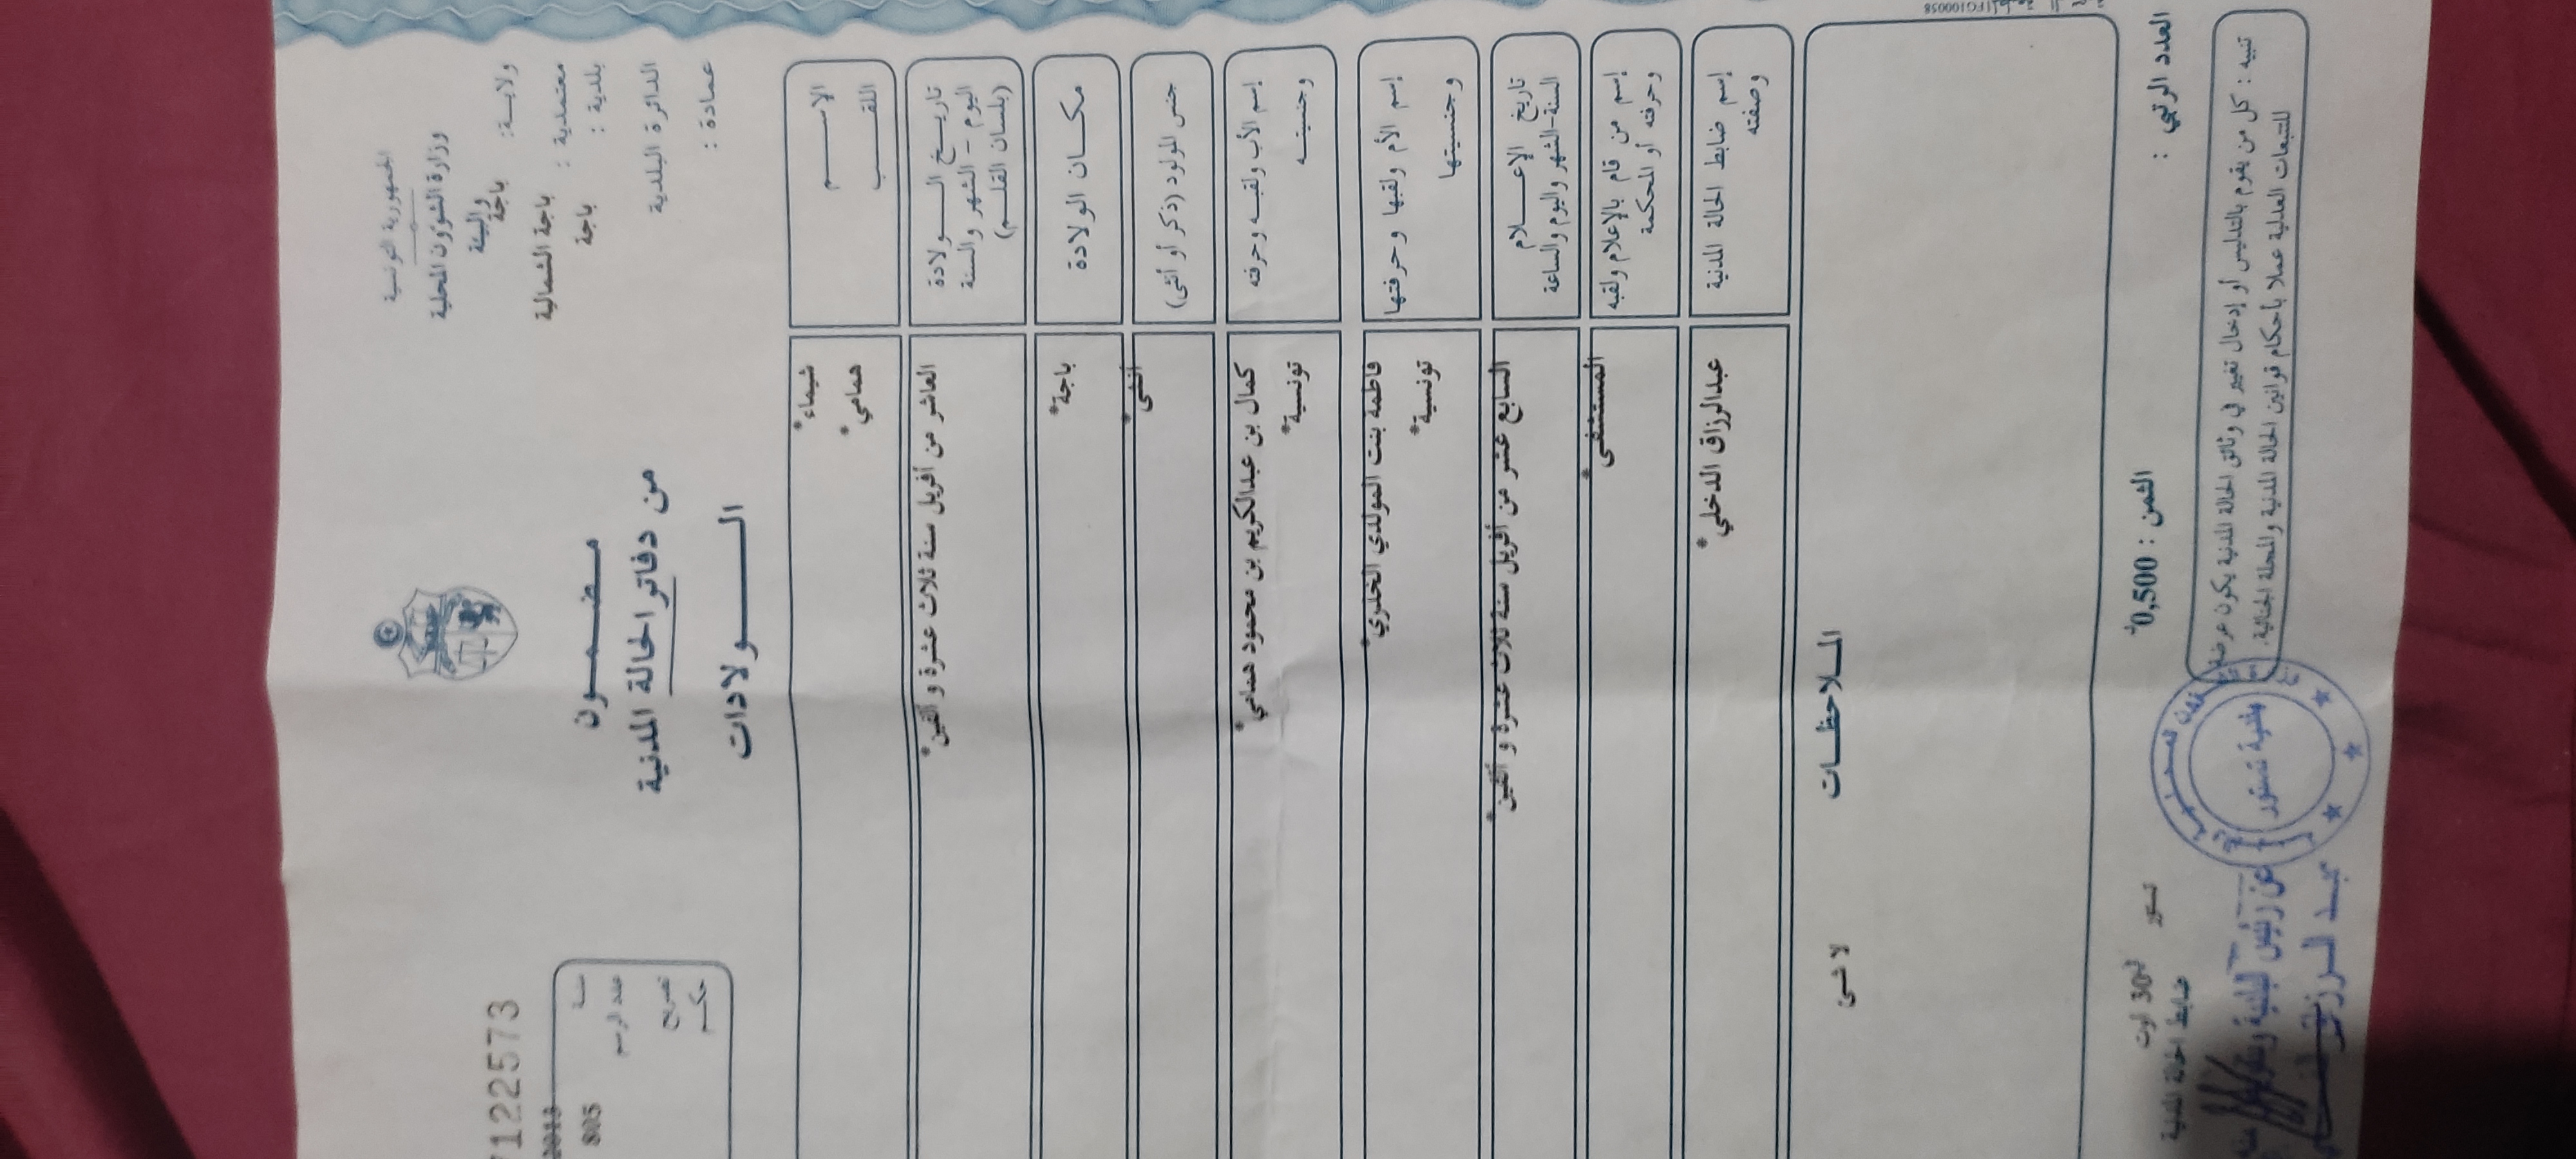 الجمهورية التونسية
وزارة الشؤون المحلية
والبيئة
ولاية: باجة
معتمدية : باجة الشمالية
بلدية : باجة
الدائرة البلدية
عمادة :
مضمون
من دفاتر الحالة المدنية
الولادات
7122573
2013
سنة
805
عدد الرسم
تصريح
حكم
الاسم
شيماء*
اللقب
همامي*
تاريخ الولادة
اليوم - الشهر والسنة
(بلسان القلم)
العاشر من أفريل سنة ثلاث عشرة و ألفين*
مكان الولادة
باجة*
جنس المولود (ذكر أو أنثى)
أنثى*
إسم الأب ولقبه وحرفته
كمال بن عبدالكريم بن محمود همامي*
وجنسيته
تونسية*
إسم الأم ولقبها وحرفتها
فاطمة بنت المولدي الخلري*
وجنسيتها
تونسية*
تاريخ الإعلام
السنة-الشهر واليوم والساعة
السابع عشر من أفريل سنة ثلاث عشرة و ألفين*
إسم من قام بالإعلام ولقبه
وحرفته أو المحكمة
المستشفى*
إسم ضابط الحالة المدنية
وصفته
عبدالرزاق الدخلي*
الملاحظات
لا شئ
1FG100058
العدد الرتبي :
الثمن : 0,500د
تستور
30 اوت
ضابط الحالة المدنية
تنبيه : كل من يقوم بالتدليس أو إدخال تغيير في وثائق الحالة المدنية يكون عرضة
للتتبعات العدلية عملا بأحكام قوانين الحالة المدنية والمجلة الجنائية.
بلدية تستور
عن رئيس البلدية